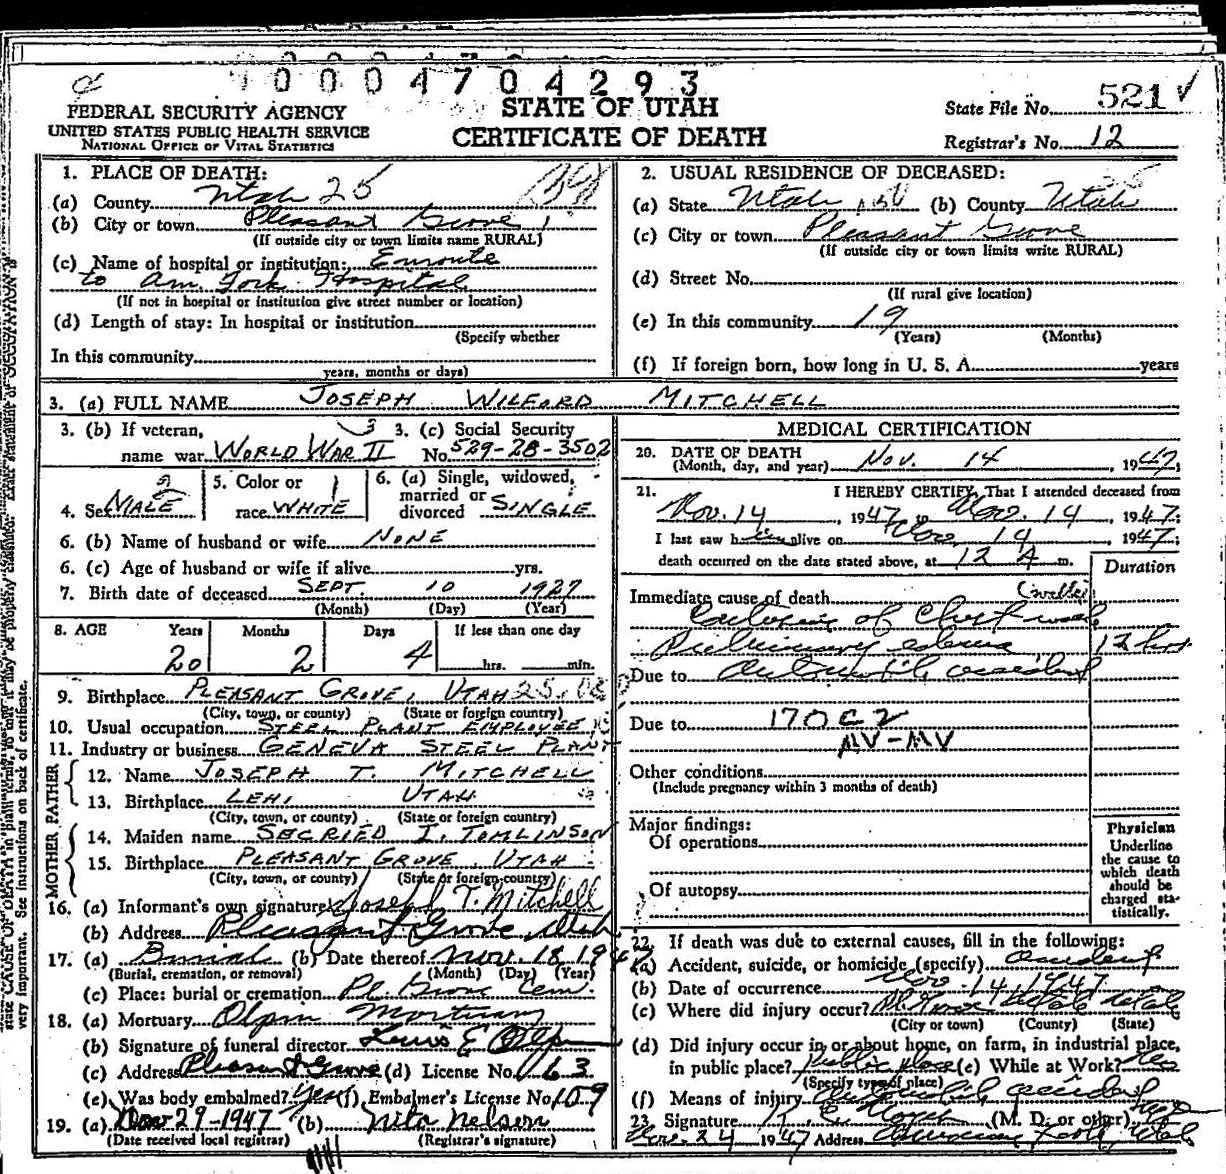 0 0 0 4 7 0 4 2 9 3
FEDERAL SECURITY AGENCY
UNITED STATES PUBLIC HEALTH SERVICE
NATIONAL OFFICE OF VITAL STATISTICS
STATE OF UTAH
CERTIFICATE OF DEATH
State File No. 521 ✓
Registrar's No. 12
1. PLACE OF DEATH:
(a) County Utah 25
(b) City or town Pleasant Grove 1
(If outside city or town limits name RURAL)
(c) Name of hospital or institution: Enroute
to Am. Fork Hospital
(If not in hospital or institution give street number or location)
(d) Length of stay: In hospital or institution
(Specify whether
In this community
years, months or days)
2. USUAL RESIDENCE OF DECEASED:
(a) State Utah (b) County Utah
(c) City or town Pleasant Grove
(If outside city or town limits write RURAL)
(d) Street No.
(If rural give location)
(e) In this community 19
(Years) (Months)
(f) If foreign born, how long in U. S. A. years
3. (a) FULL NAME JOSEPH WILFORD MITCHELL
3. (b) If veteran, 3. (c) Social Security
name war WORLD WAR II No. 529-28-3502
4. Sex MALE
5. Color or
race WHITE
6. (a) Single, widowed,
married or
divorced SINGLE
6. (b) Name of husband or wife NONE
6. (c) Age of husband or wife if alive yrs.
7. Birth date of deceased SEPT. 10 1927
(Month) (Day) (Year)
8. AGE Years Months Days If less than one day
20 2 4 hrs. min.
9. Birthplace PLEASANT GROVE, UTAH
(City, town, or county) (State or foreign country)
10. Usual occupation STEEL PLANT EMPLOYEE
11. Industry or business GENEVA STEEL PLANT
FATHER
12. Name JOSEPH T. MITCHELL
13. Birthplace LEHI, UTAH
(City, town, or county) (State or foreign country)
MOTHER
14. Maiden name SEGRIED I. TOMLINSON
15. Birthplace PLEASANT GROVE, UTAH
(City, town, or county) (State or foreign country)
16. (a) Informant's own signature Joseph T. Mitchell
(b) Address Pleasant Grove, Utah
17. (a) Burial (b) Date thereof Nov. 18 1947
(Burial, cremation, or removal) (Month) (Day) (Year)
(c) Place: burial or cremation Pl. Grove Cem.
18. (a) Mortuary Olpin Mortuary
(b) Signature of funeral director Lewis E Olpin
(c) Address Pleasant Grove (d) License No. 63
(e) Was body embalmed? Yes (f) Embalmer's License No. 109
19. (a) Nov 29-1947 (b) Nita Nelson
(Date received local registrar) (Registrar's signature)
MEDICAL CERTIFICATION
20. DATE OF DEATH
(Month, day, and year) Nov. 14, 1947;
21. I HEREBY CERTIFY, That I attended deceased from
Nov. 14, 1947 to Nov. 14, 1947;
I last saw him alive on Nov. 14, 1947;
death occurred on the date stated above, at 12 A m.
Duration
Immediate cause of death
of Chest
12 hrs
Due to Automobile accident
Due to 170 C2
MV-MV
Other conditions
(Include pregnancy within 3 months of death)
Major findings:
Of operations
Of autopsy
Physician
Underline
the cause to
which death
should be
charged sta-
tistically.
22. If death was due to external causes, fill in the following:
(a) Accident, suicide, or homicide (specify) accident
(b) Date of occurrence Nov 14 1947
(c) Where did injury occur? Pl. Grove Utah Utah
(City or town) (County) (State)
(d) Did injury occur in or about home, on farm, in industrial place,
in public place? Public place (e) While at Work?
(Specify type of place)
(f) Means of injury Automobile accident
23. Signature (M. D. or other)
Nov. 24 1947 Address American Fork, Utah
very important. See instructions on back of certificate.